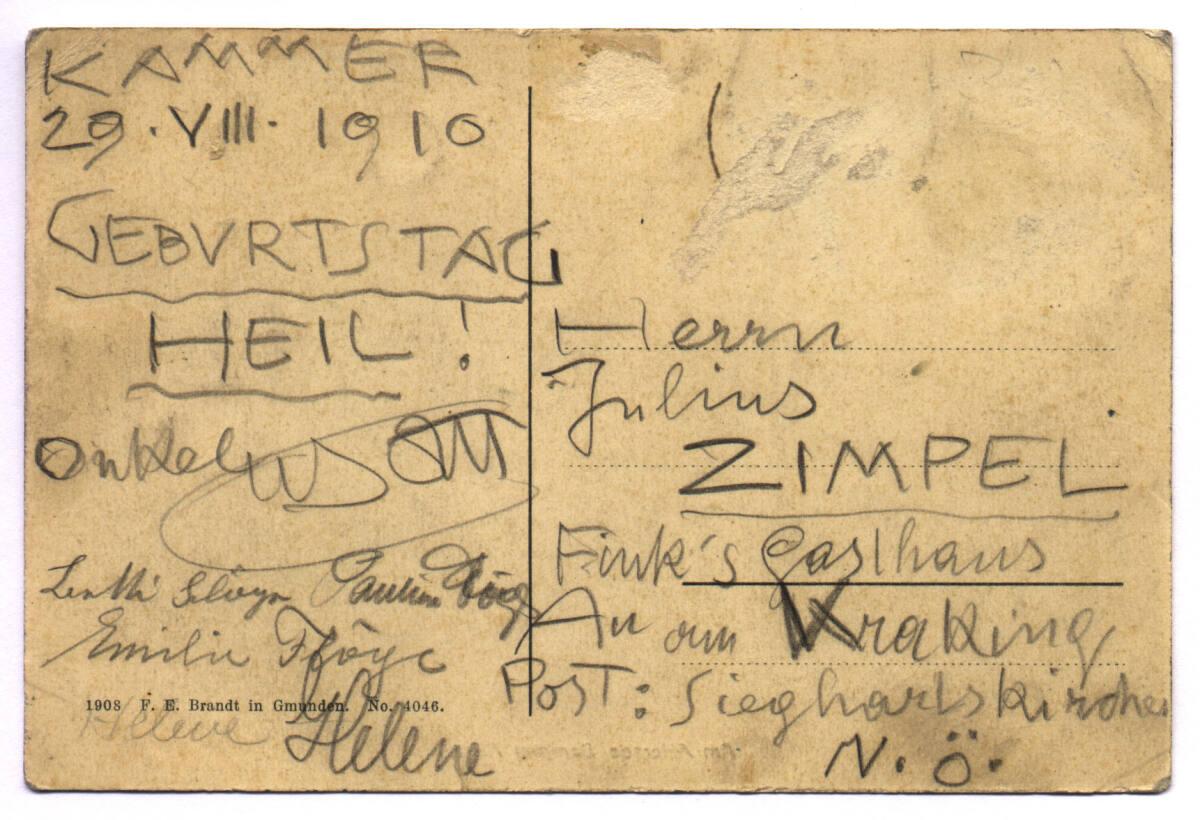 KAMMER
29. VIII. 1910
GEBVRTSTAG
HEIL!
Onkel
Pauline Flöge
Emilie Flöge
1908 F. E. Brandt in Gmunden. No. 4046.
Helene Helene
Herrn
Julius
ZIMPEL
Fink's Gasthaus
Au am Kraking
POST: Sieghartskirchen
N. Ö.